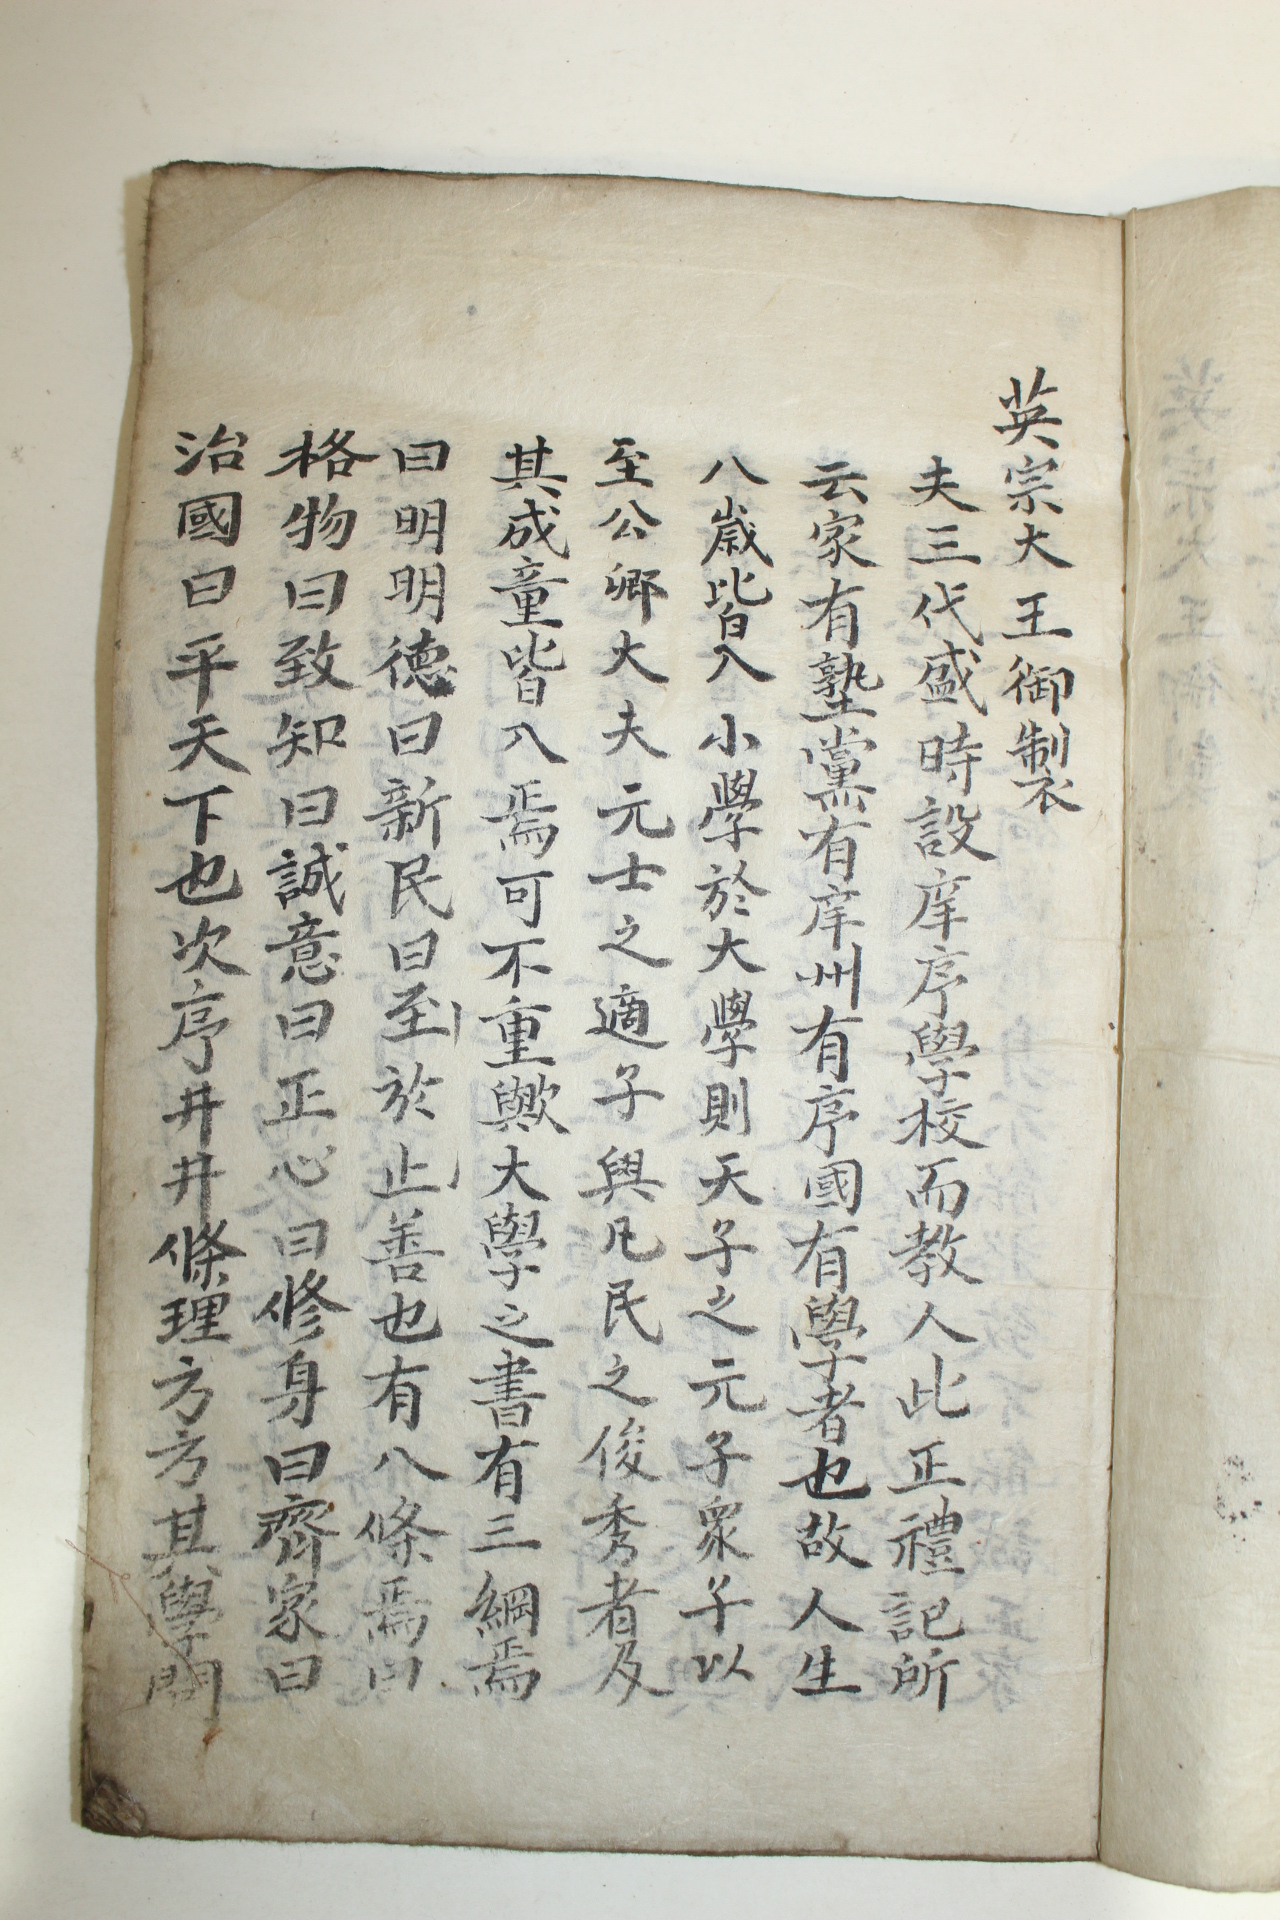 英宗大王御製
夫三代盛時設庠序學校而教人此正禮記所
云家有塾黨有庠州有序國有學者也故人生
八歲皆入小學於大學則天子之元子衆子以
至公卿大夫元士之適子與凡民之俊秀者及
其成童皆入焉可不重歟大學之書有三綱焉
曰明明德曰新民曰至於止善也有八條焉曰
格物曰致知曰誠意曰正心曰修身曰齊家曰
治國曰平天下也次序井井條理方方其學問